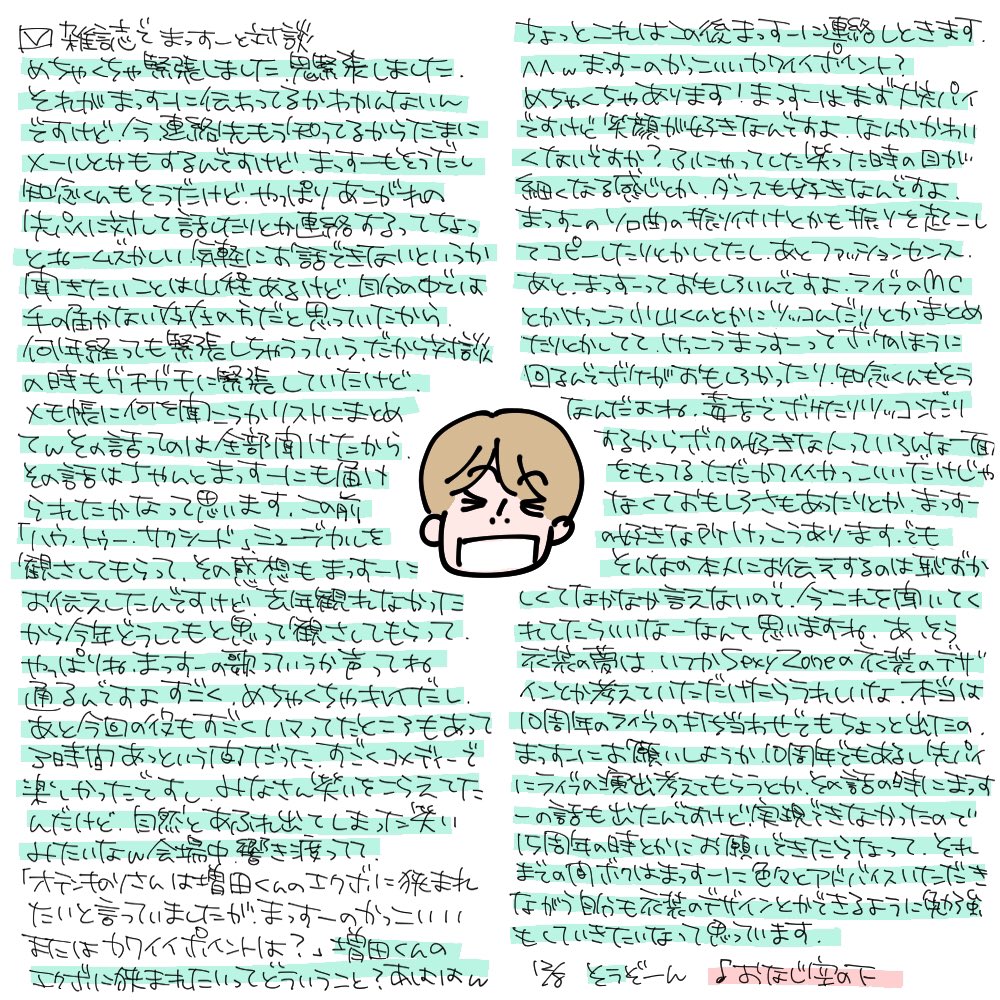 雑誌でまっすーと対談
めちゃくちゃ緊張しました.鬼緊張しました.
それがまっすーに伝わってるかわかんないん
ですけど.今連絡先もう知ってるからたまに
メールとかもするんですけど.まっすーもそうだし
知念くんもそうだけど.やっぱりあこがれの
先パイに対して話したりとか連絡するってちょっ
とねームズかしい.気軽にお話できないというか
聞きたいことは山程あるけど.自分の中では
手の届かない存在の方だと思っていたから.
何年経っても緊張しちゃうっていう.だから対談
の時もガチガチに緊張していたけど.
メモ帳に何を聞こうかリストにまとめ
てwその話ってのは全部聞けたから.
その話はちゃんとまっすーにも届け
られたかなって思います.この前
「ハウ・トゥー・サクシード」ミュージカルを
観させてもらって.その感想もまっすーに
お伝えしたんですけど.去年観れなかった
から今年どうしてもと思って観させてもらって.
やっぱりね.まっすーの歌っていうか声ってね
通るんですよすごく めちゃくちゃキレイだし.
あと今回の役もすごくハマってたところもあって
3時間あっという間だった.すごくコメディーで
楽しかったですし.みなさん笑いをこらえてた
んだけど.自然とあふれ出てしまった笑い
みたいなw会場中響き渡ってて.
「オテンキのりさんは増田くんのエクボに挟まれ
たいと言っていましたが.まっすーのかっこいい
またはカワイイポイントは?」増田くんの
エクボに挟まれたいってどういうこと?あははははw
ちょっとこれはこの後まっすーに連絡しときます.
ハハwまっすーのかっこいいカワイイポイント?
めちゃくちゃあります!まっすーはまず先パイ
ですけど笑顔が好きなんですよ.なんかかわい
くないですか?ふにゃってした笑った時の目が
細くなる感じとか.ダンスも好きなんですよ.
まっすーのソロ曲の振り付けとかも振りを起こし
てコピーしたりとかしてたし.あとファッションセンス.
あと.まっすーっておもしろいんですよ.ライブのMC
とかけっこう小山くんとかにツッコんだりとかまとめ
だりとかしてて.けっこうまっすーってボケのほうに
回るんでボケがおもしろかったり.知念くんもそう
なんだよね.毒舌でボケたりツッコンだり
するからボクの好きな人っていろんな一面
をもってる.ただカワイイかっこいいだけじゃ
なくておもしろさもあったりとか.まっすー
の好きな所けっこうあります.でも
そんなの本人にお伝えするのは恥ずか
しくてなかなか言えないので.今これを聞いてく
れてたらいいなーなんて思いますね.あ.そう
衣装の夢は.いつかSexy Zoneの衣装のデザ
インとか考えていただけたらうれしいな.本当は
10周年のライブのまた当わせでもちょっと出たの.
まっすーにお願いしようか.10周年でもあるし先パイ
にライブの演出考えてもらうとか.その話の時にまっす
ーの話も出たんですけど.実現できなかったので
15周年の時とかにお願いできたらなって.それ
までの間ボクはまっすーに色々とアドバイスいただき
ながら自分も衣装のデザインとかできるように勉強
もしていきたいなって思っています.
そうぞーん ♪おなじ空の下